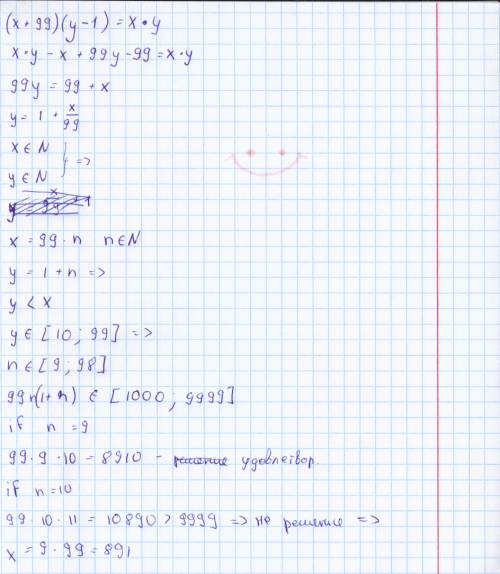 (x + 99)(y - 1) = x • y
x • y - x + 99y - 99 = x • y
99y = 99 + x
y = 1 + x/99
x ∈ N
y ∈ N } =>
x = 99 · n   n ∈ N
y = 1 + n =>
y < x
y ∈ [10 ; 99] =>
n ∈ [9 ; 98]
99n(1 + n) ∈ [1000 ; 9999]
if n = 9
99 · 9 · 10 = 8910 - решение удовлетвор.
if n = 10
99 · 10 · 11 = 10890 > 9999 => не решение =>
x = 9 · 99 = 891